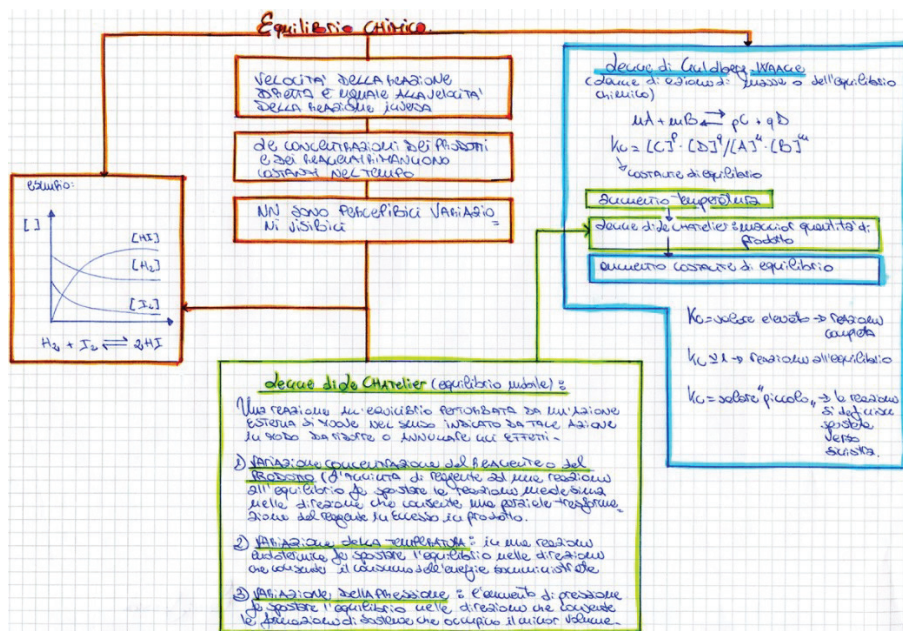 Equilibrio CHIMICO
VELOCITA' DELLA REAZIONE
DIRETTA È UGUALE ALLA VELOCITA'
DELLA REAZIONE INVERSA
LE CONCENTRAZIONI DEI PRODOTTI
E DEI REAGENTI RIMANGONO
COSTANTI NEL TEMPO
NN SONO PERCEPIBILI VARIAZIO=
NI VISIBILI
esempio:
[ ]
[HI]
[H₂]
[I₂]
H₂ + I₂ ⇌ 2HI
legge di Guldberg-WAAGE
(legge di azione di massa o dell'equilibrio
chimico)
nA + mB ⇌ pC + qD
Kc = [C]ᵖ · [D]ᑫ/[A]ⁿ · [B]ᵐ
↳ costante di equilibrio
aumento temperatura
legge di le CHATELIER: maggior quantità di
prodotto
aumento costante di equilibrio
Kc = valore elevato → reazione
completa
Kc ≃ 1 → reazione all'equilibrio
Kc = valore "piccolo" → la reazione
si definisce
spostata
verso
sinistra.
legge di le CHATELIER (equilibrio mobile):
Una reazione in equilibrio perturbata da un'azione
esterna si nel senso indicato da tale azione
in modo da ridurre o annullare gli effetti.
1) VARIAZIONE CONCENTRAZIONE del REAGENTE o del
PRODOTTO (L'aggiunta di reagente ad una reazione
all'equilibrio fa spostare la reazione medesima
nella direzione che consente una parziale trasforma=
zione del reagente in eccesso in prodotto.
2) VARIAZIONE della TEMPERATURA: in una reazione
endotermica fa spostare l'equilibrio nella direzione
che consente il consumo dell'energia somministrata
3) VARIAZIONE DELLA PRESSIONE: l'aumento di pressione
fa spostare l'equilibrio nella direzione che consente
la formazione di sostanze che occupino il minor volume.